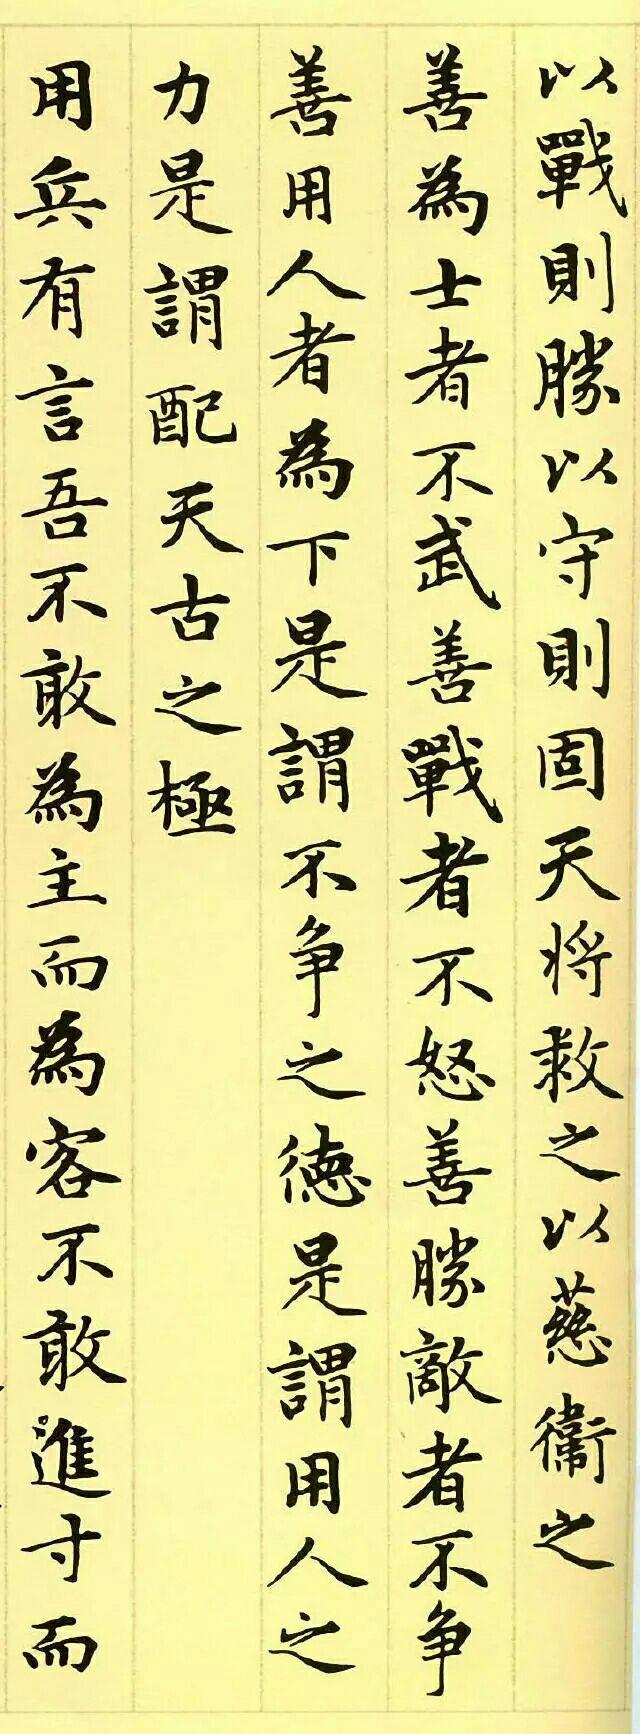 以戰則勝以守則固天将救之以慈衞之
善為士者不武善戰者不怒善勝敵者不争
善用人者為下是謂不争之徳是謂用人之
力是謂配天古之極
用兵有言吾不敢為主而為客不敢進寸而